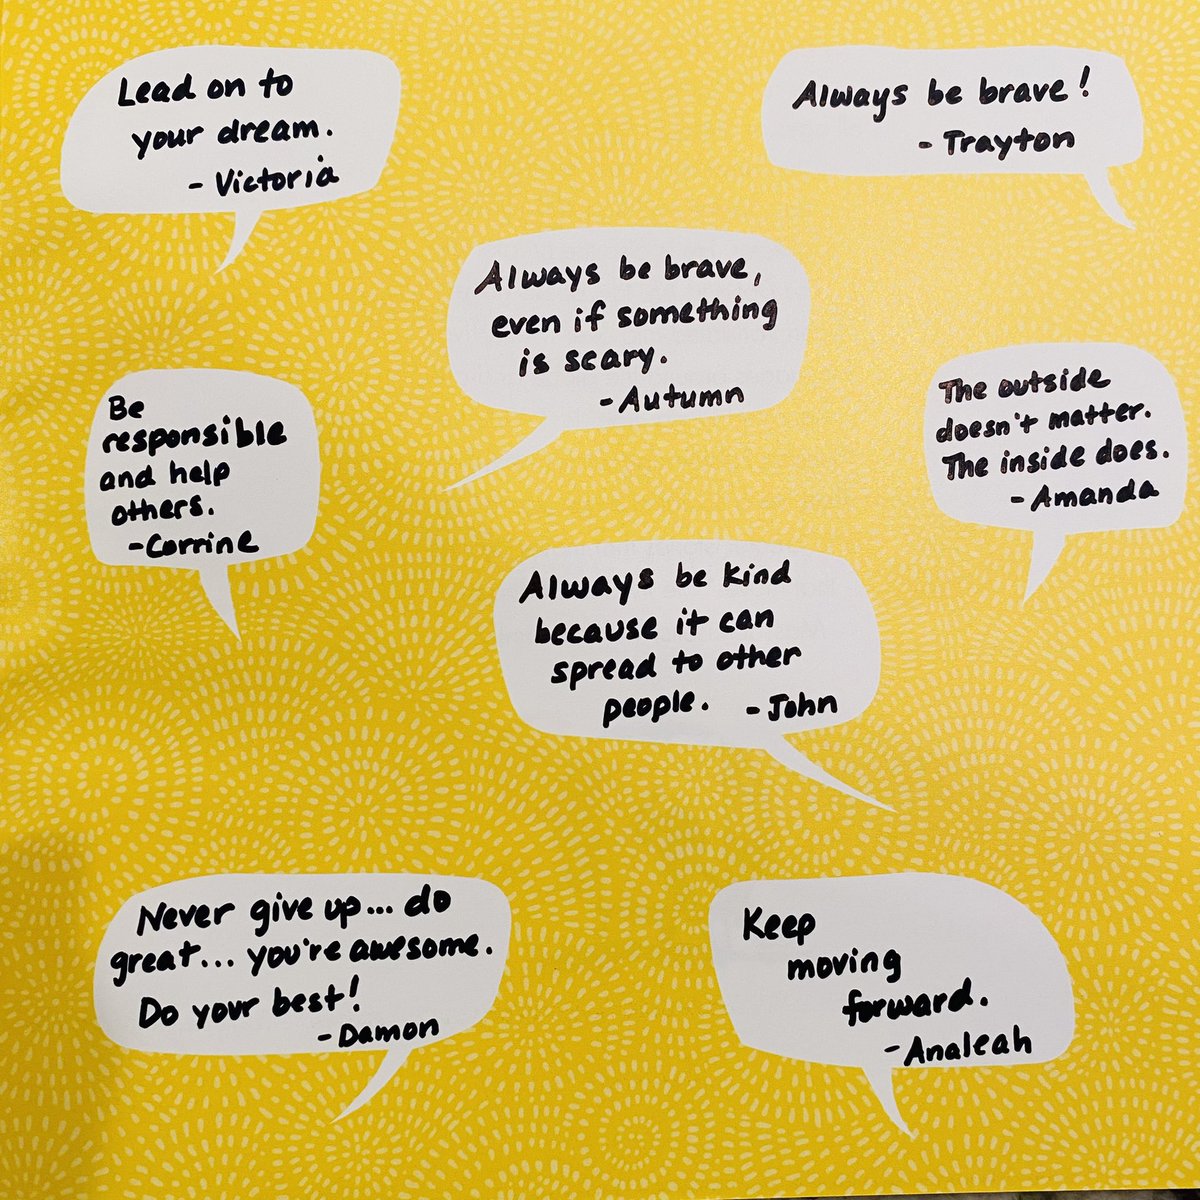 Lead on to
your dream.
- Victoria
Always be brave!
- Trayton
Always be brave,
even if something
is scary.
- Autumn
Be
responsible
and help
others.
- Corrine
The outside
doesn't matter.
The inside does.
- Amanda
Always be kind
because it can
spread to other
people. - John
Never give up... do
great... you're awesome.
Do your best!
- Damon
Keep
moving
forward.
- Analeah